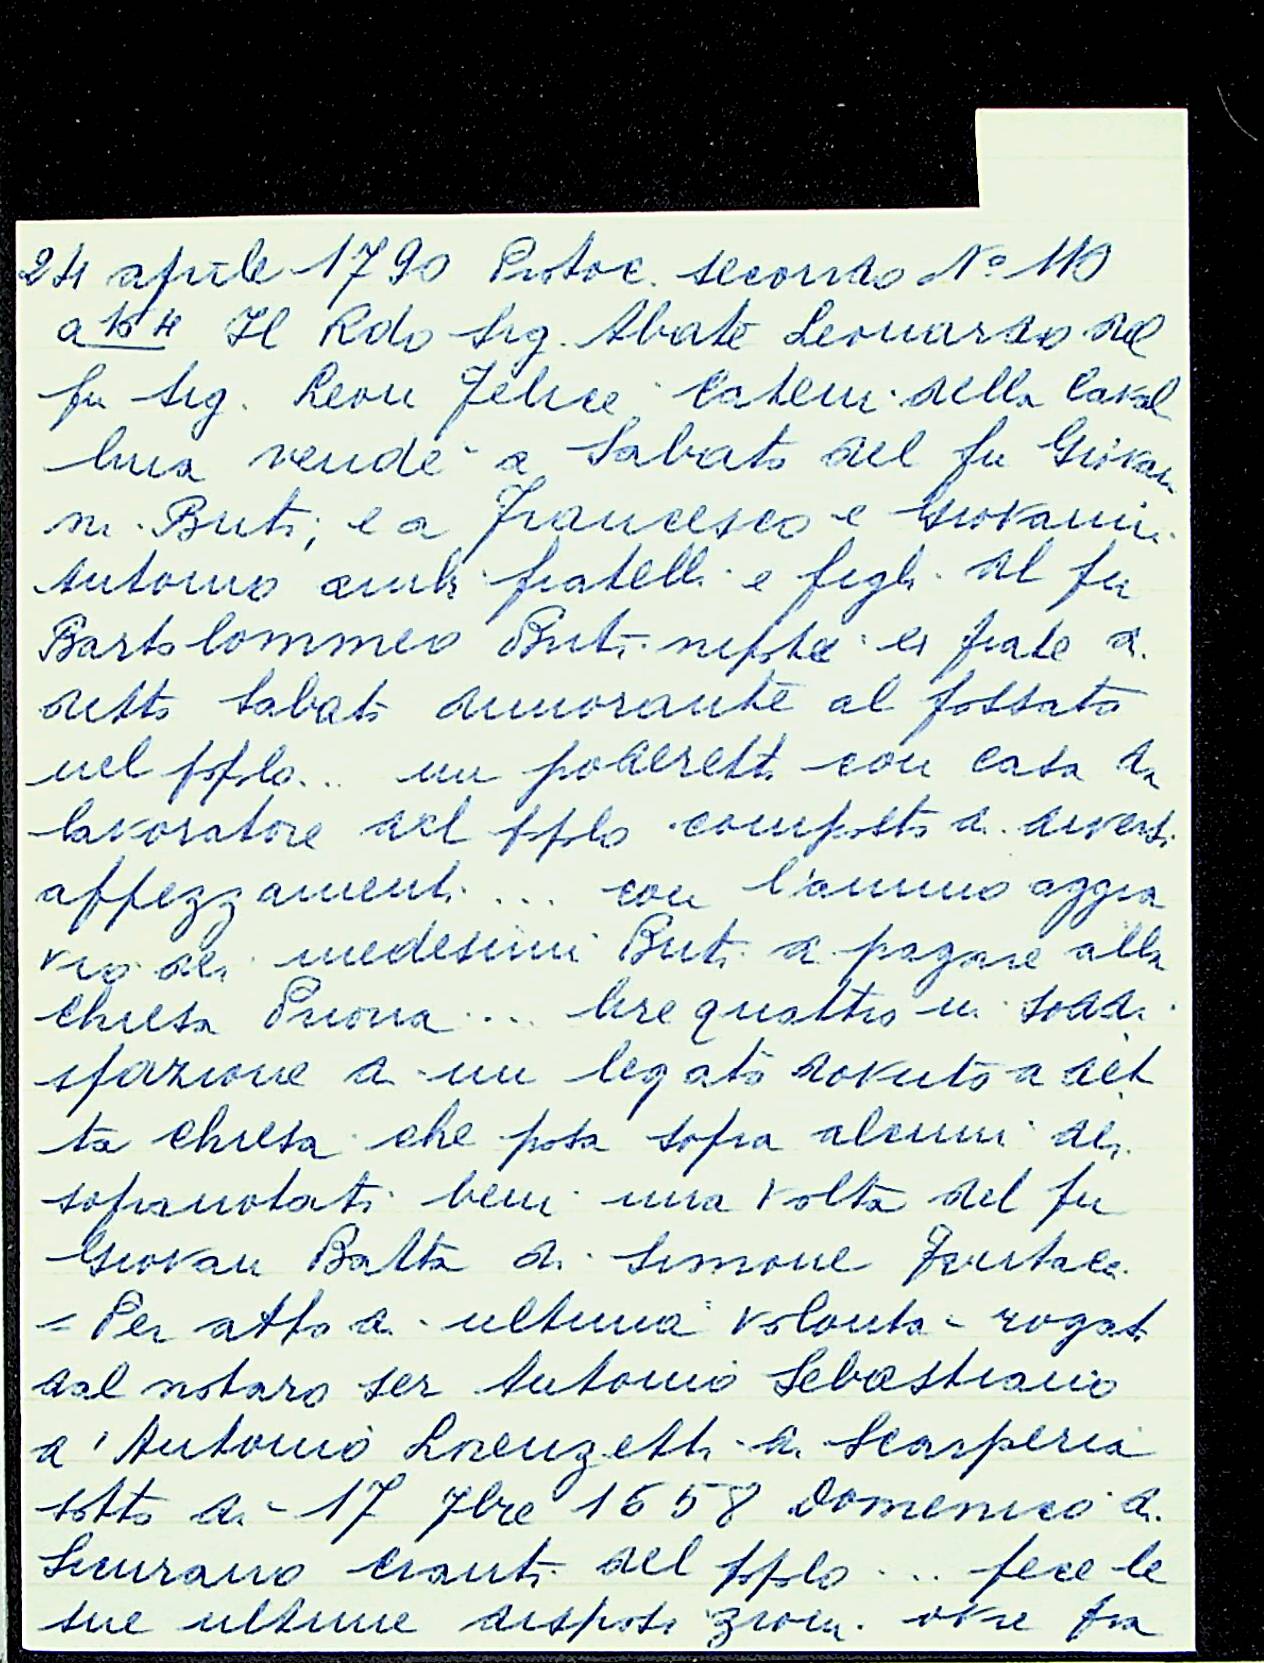 24 aprile 1790 Protoc. secondo N° 110
a 154 Il Rdo Sig. Abate Leonardo del
fu Sig. Leon Felice Cateni della Caval
lina vende a Sabato del fu Giovan
ni Buti; e a Francesco e Giovanni
Antonio ambi fratelli e figli del fu
Bartolommeo Buti nepote e frate di
detto Sabato dimorante al fossato
nel pplo... un poderetto con casa da
lavoratore del pplo composto di diversi
appezzamenti ... con l'annuo aggra
vio dei medesimi Buti di pagare alla
chiesa Priora .... lire quattro in soddi
sfazione di un legato dovuto a det
ta chiesa che posa sopra alcuni dei
sopranotati beni una volta del fu
Giovan Batta di Simone
= Per atto di ultima volontà rogato
dal notaro ser Antonio Sebastiano
d'Antonio Lorenzetti di Scarperia
sotto di 17 7bre 1658 Domenico di
Simrano del pplo ... fece le
sue ultime disposizioni ove fra